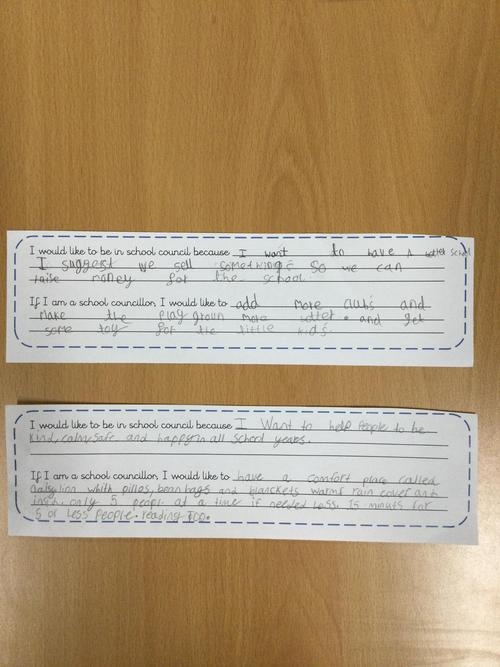 I would like to be in school council because I want to have a better school
I suggest we sell something so we can
raise money for the school
If I am a school councillor, I would like to add more clubs and
make the playgroun more and get
some toy for the little kids
I would like to be in school council because I Want to help People to be
kind, calm, safe and happy in all School years.
If I am a school councillor, I would like to have a comfort place called
whith pillos, bean bags and blanckets warmf rain cover and
only 5 people at a time if needed Less. 15 minuts for
5 or Less People. reading Too.